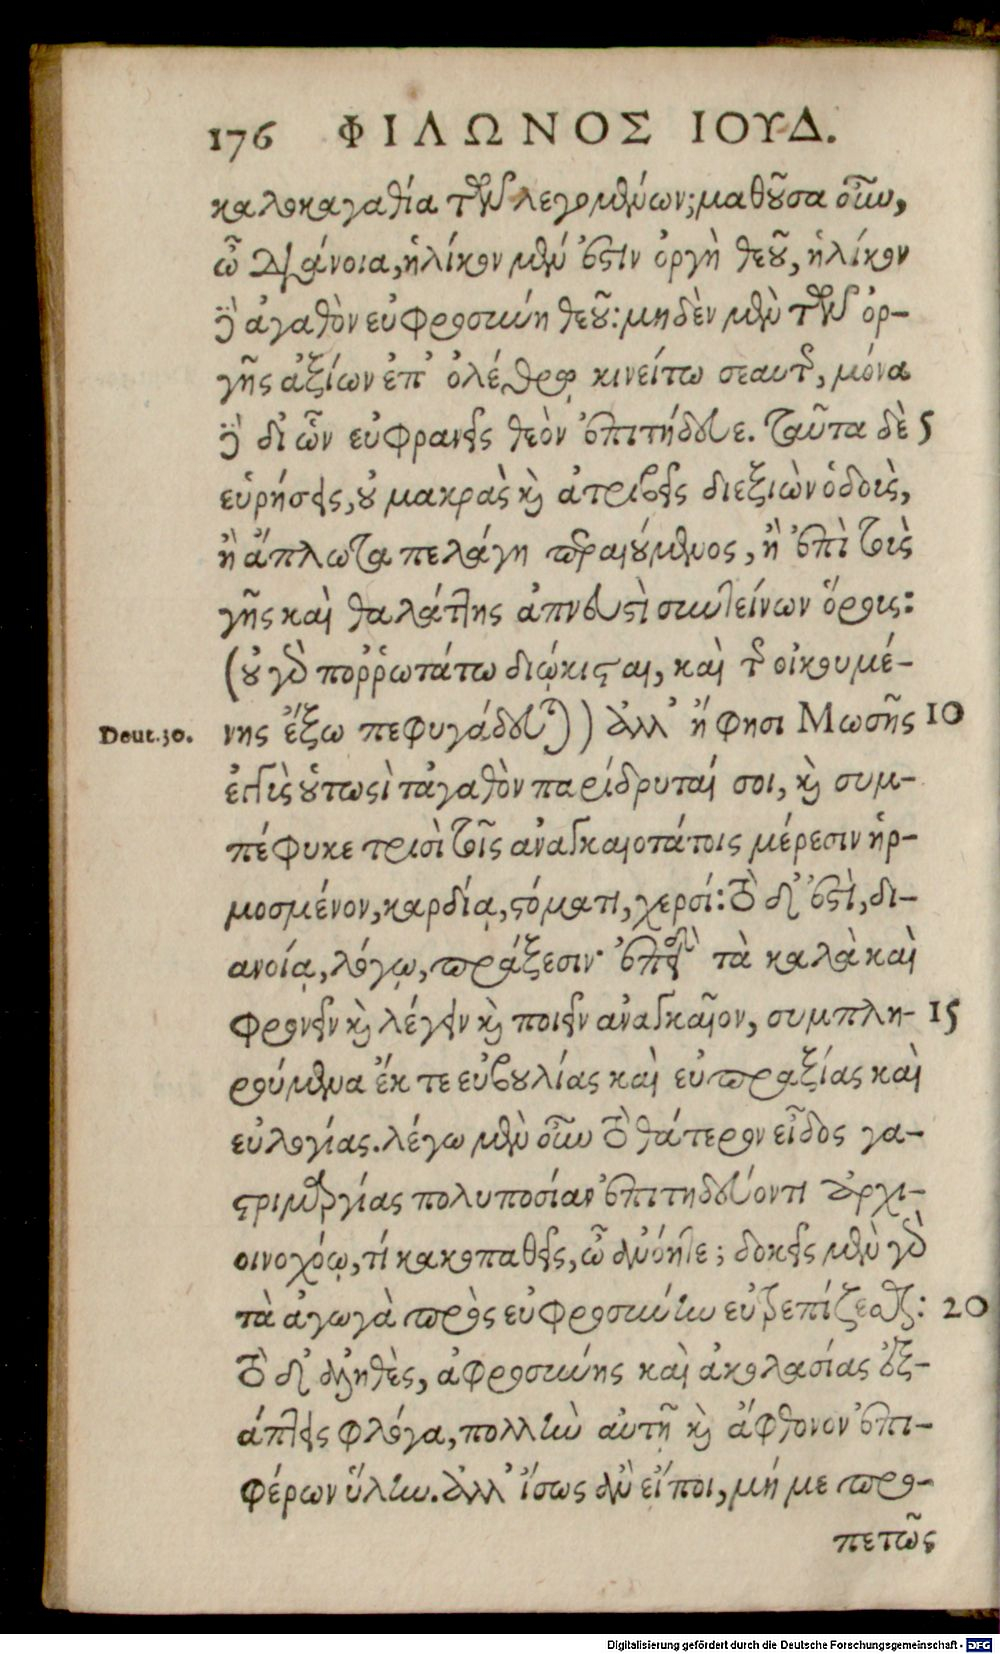 176 ΦΙΛΩΝΟΣ ΙΟΥΔ.
καλοκαγαθία τῶν λεγομένων; μαθοῦσα οὖν,
ὦ διάνοια, ἡλίκον μὲν ἐστὶν ὀργὴ θεοῦ, ἡλίκον
δὲ ἀγαθὸν εὐφροσύνη θεοῦ: μηδὲν μὲν τῶν ὀρ-
γῆς ἀξίων ἐπ' ὀλέθρῳ κινείτω σεαυτῆς, μόνα
δὲ δι' ὧν εὐφρανεῖς θεὸν ἐπιτήδευε. Ταῦτα δὲ 5
εὑρήσεις, οὐ μακρὰς καὶ ἀτριβεῖς διεξιὼν ὁδοὺς,
ἢ ἄπλωτα πελάγη περαιούμενος, ἢ ἐπὶ τοὺς
γῆς καὶ θαλάττης ἀπνευστὶ συντείνων ὅρους:
(οὐ γὰρ ποῤῥωτάτω διῴκισται, καὶ τῆς οἰκουμέ-
Deut. 30. νης ἔξω πεφυγάδευται) ἀλλ' ἥ φησι Μωσῆς 10
ἐγγὺς οὑτωσὶ τἀγαθὸν παρίδρυταί σοι, καὶ συμ-
πέφυκε τρισὶ τοῖς ἀναγκαιοτάτοις μέρεσιν ἡρ-
μοσμένον, καρδίᾳ, στόματι, χερσί: τὸ δ' ἐστὶ, δι-
ανοίᾳ, λόγῳ, πράξεσιν· ἐπειδὴ τὰ καλὰ καὶ
φρονεῖν καὶ λέγειν καὶ ποιεῖν ἀναγκαῖον, συμπλη- 15
ρούμενα ἔκ τε εὐβουλίας καὶ εὐπραξίας καὶ
εὐλογίας. λέγω μὲν οὖν τὸ θάτερον εἶδος γα-
στριμαργίας πολυποσίαν ἐπιτηδεύοντι ἀρχι-
οινοχόῳ, τί κακοπαθεῖς, ὦ ἀνόητε; δοκεῖς μὲν γὰρ
τὰ ἀγωγὰ πρὸς εὐφροσύνην εὐτρεπίζεσθαι: 20
τὸ δ' ἀληθὲς, ἀφροσύνης καὶ ἀκολασίας ἐξ-
άπτεις φλόγα, πολλὴν αὐτῇ καὶ ἄφθονον ἐπι-
φέρων ὕλην. ἀλλ' ἴσως ἂν εἴποι, μή με προ-
πετῶς
Digitalisierung gefördert durch die Deutsche Forschungsgemeinschaft - DFG